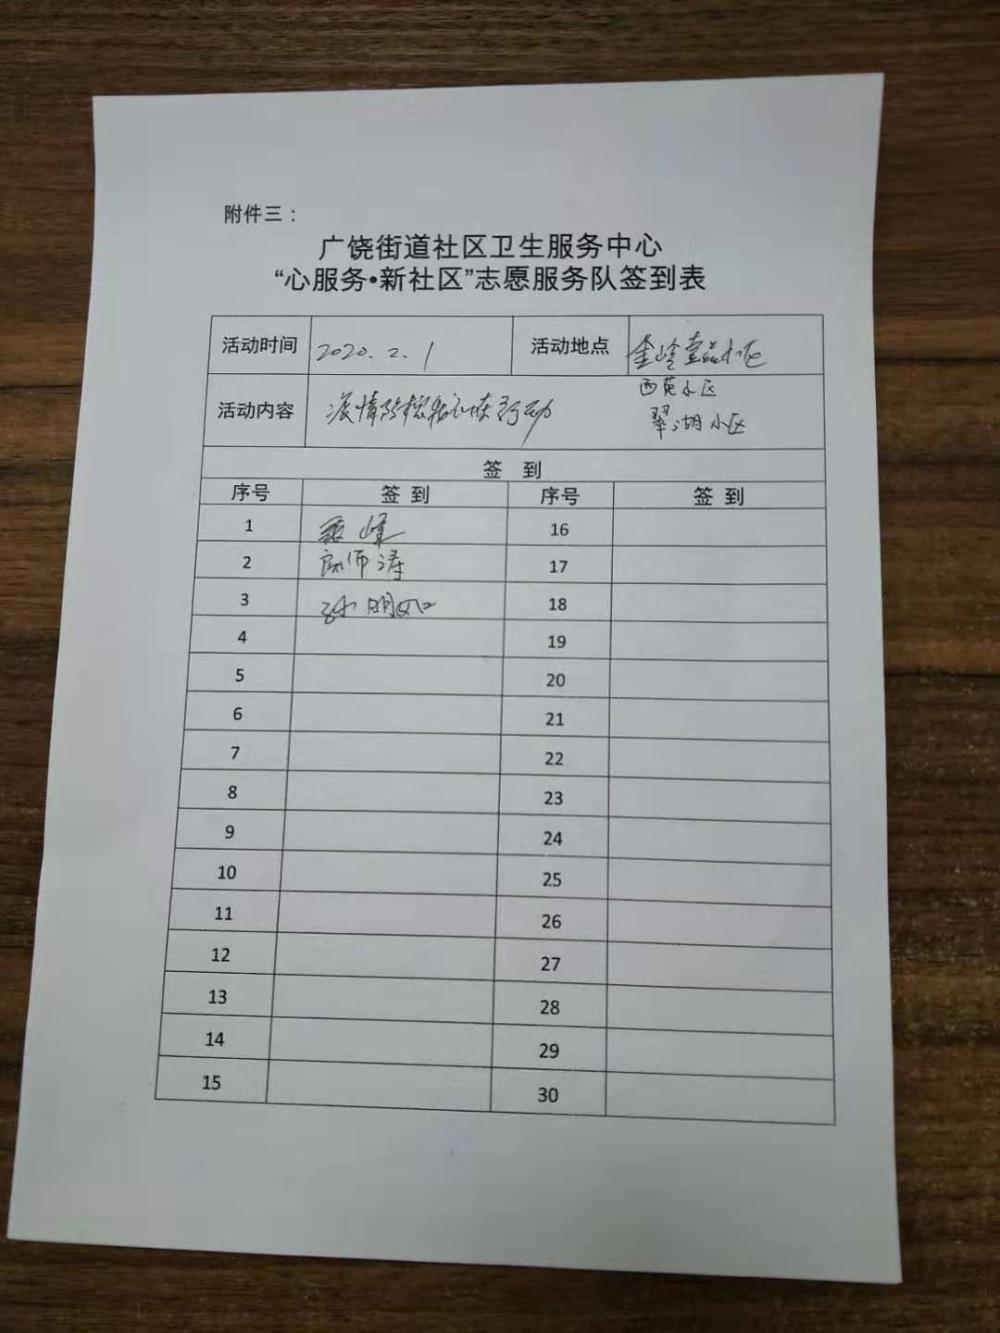 附件三：
广饶街道社区卫生服务中心
“心服务•新社区”志愿服务队签到表
活动时间 2020.2.1 活动地点 金岭壹品小区
西苑小区
活动内容 疫情防控 行动 翠湖小区
签 到
序号 签 到 序号 签 到
1 峰 16
2 师涛 17
3 孙明 18
4 19
5 20
6 21
7 22
8 23
9 24
10 25
11 26
12 27
13 28
14 29
15 30